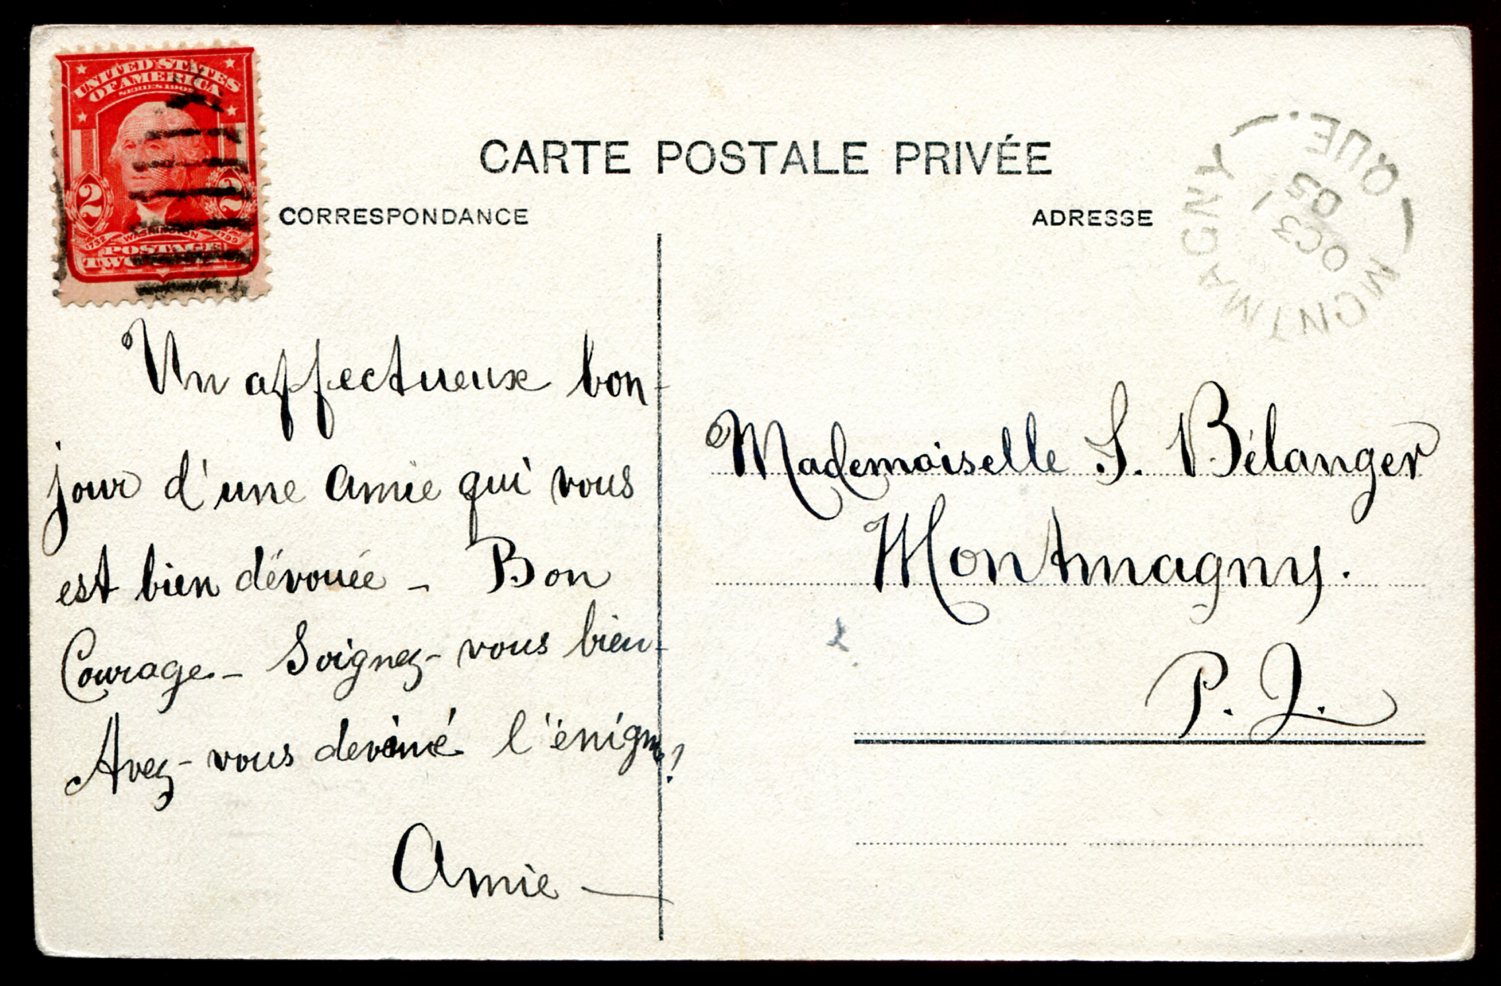 UNITED STATES
OF AMERICA
SERIES 1902
2 2
1732 WASHINGTON 1799
POSTAGE
TWO
CARTE POSTALE PRIVÉE
CORRESPONDANCE
ADRESSE
MONTMAGNY QUE.
OC 31
05
Un affectueux bon-
jour d'une amie qui vous
est bien dévouée - Bon
Courage - Soignez-vous bien -
Avez-vous deviné l'énigme?
Amie -
Mademoiselle S. Bélanger
Montmagny.
P. Q.